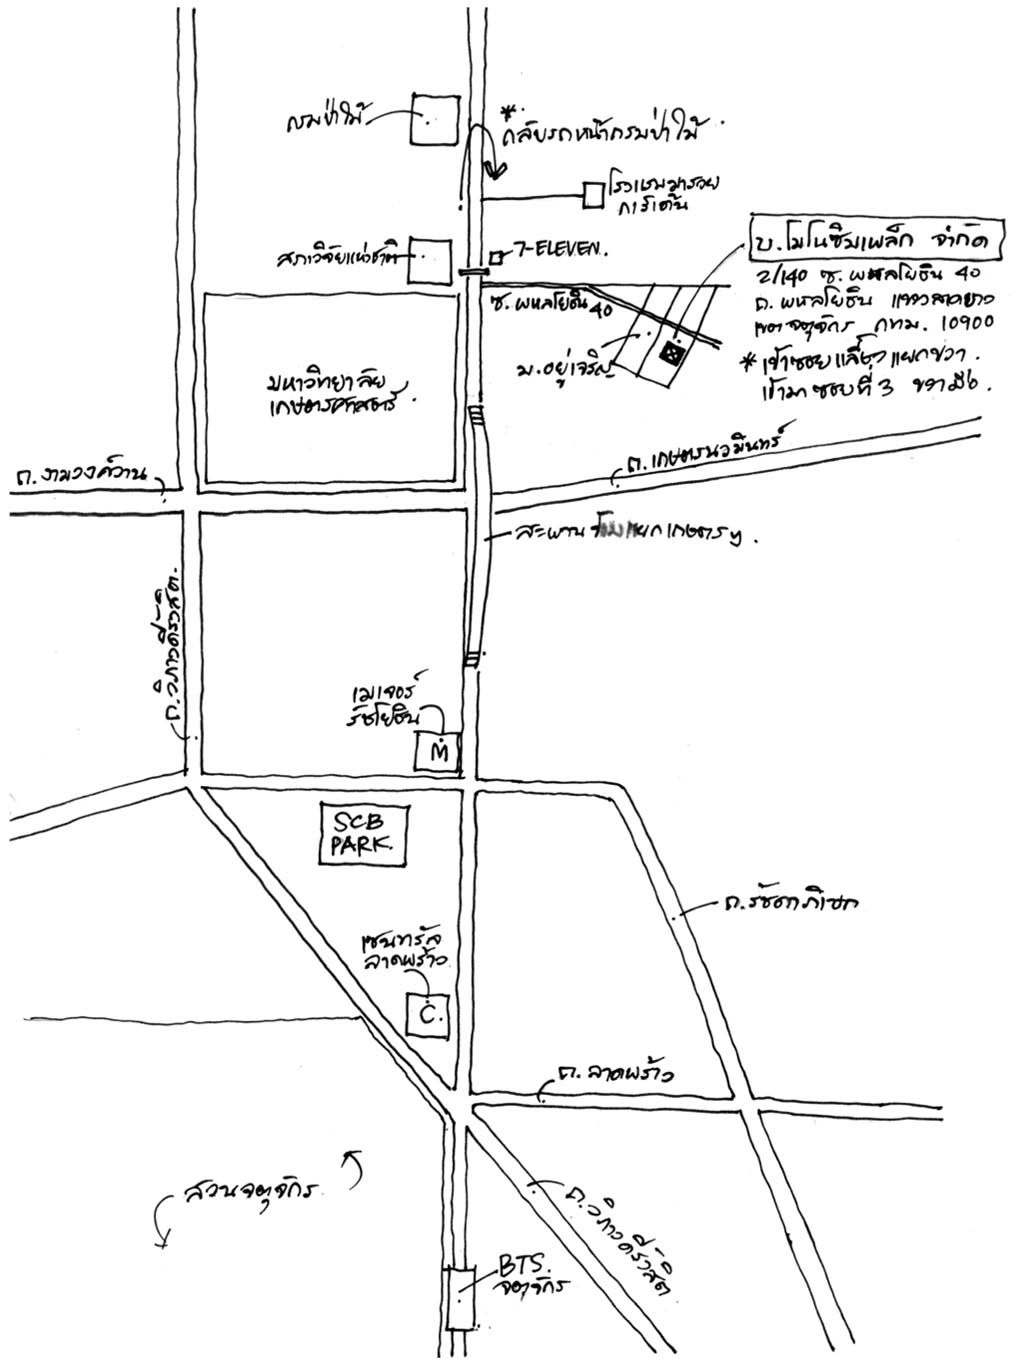 กรมป่าไม้
* กลับรถหน้ากรมป่าไม้
โรงแรมมารวย
การ์เด้น
สภาวิจัยแห่งชาติ
7-ELEVEN.
บ.โมโนซิมเพล็ก จำกัด
2/140 ซ. พหลโยธิน 40
ถ. พหลโยธิน แขวงลาดยาว
เขตจตุจักร กทม. 10900
* เข้าซอยแล้วแยกขวา.
เข้ามาซอยที่ 3 ขวามือ.
ซ. พหลโยธิน 40
ม.อยู่เจริญ
มหาวิทยาลัย
เกษตรศาสตร์
ถ.งามวงศ์วาน
ถ.เกษตรนวมินทร์
สะพาน แยกเกษตรฯ.
ถ.วิภาวดีรังสิต.
เมเจอร์
รัชโยธิน
M
SCB
PARK.
ถ.รัชดาภิเษก
เซนทรัล
ลาดพร้าว
C.
ถ. ลาดพร้าว
สวนจตุจักร
ถ.วิภาวดีรังสิต
BTS.
จตุจักร